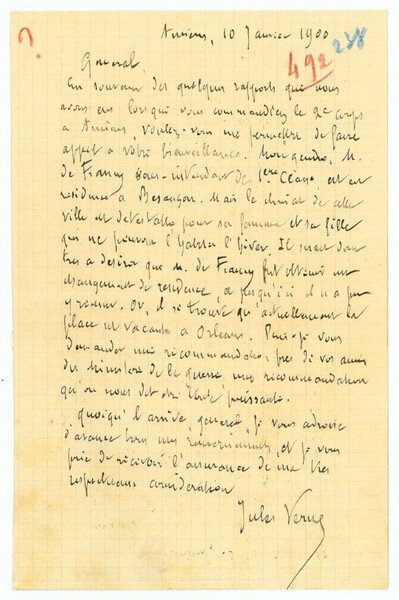 Amiens, 10 Janvier 1900
492 238
Général,
En souvenir des quelques rapports que nous
avons eus lorsque vous commandiez le 2e corps
à Amiens, voulez-vous me permettre de faire
appel à votre bienveillance. Mon gendre, M.
de Francy sous-intendant de 1ère Classe est en
résidence à Besançon. Mais le climat de cette
ville est détestable pour sa femme et sa fille
qui ne pourra l'habiter l'hiver. Il serait donc
très à désirer que M. de Francy put obtenir un
changement de résidence, et jusqu'ici il n'a pu
y réussir. Or, il se trouve qu'actuellement la
place est vacante à Orléans. Puis-je vous
demander une recommandation près de vos amis
du Ministère de la guerre, une recommandation
qu'on nous dit être toute puissante.
Quoiqu'il arrive, général, je vous adresse
d'avance tous mes remerciements, et je vous
prie de recevoir l'assurance de ma très
respectueuse considération
Jules Verne